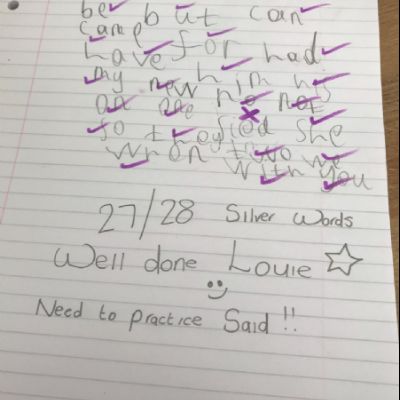 be but can
came
have for had
my new him his
on are no not
so they sied she
when two we
with you
27/28 Silver Words
Well done Louie
Need to practice Said !!